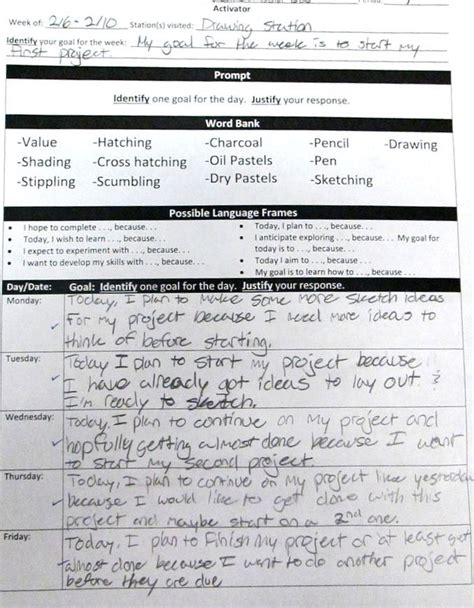 Activator
Week of: 2/6 - 2/10 Station(s) visited: Drawing Station
Identify your goal for the week: My goal for the week is to start my
first project.
Prompt
Identify one goal for the day. Justify your response.
Word Bank
-Value -Hatching -Charcoal -Pencil -Drawing
-Shading -Cross hatching -Oil Pastels -Pen
-Stippling -Scumbling -Dry Pastels -Sketching
Possible Language Frames
• I hope to complete . . ., because. . . • Today, I plan to . . ., because. . .
• Today, I wish to learn . . ., because. . . • I anticipate exploring . . ., because. . . My goal for
• I expect to experiment with . . ., because. . . today is to . . ., because. . .
• I want to develop my skills with . . ., because. . . • Today I aim to . . ., because. . .
• My goal is to learn how to . . ., because. . .
Day/Date: Goal: Identify one goal for the day. Justify your response.
Monday: Today, I plan to make some more sketch ideas
for my project because I need more ideas to
think of before starting.
Tuesday: Today I plan to start my project because
I have already got ideas to lay out. &
I'm ready to sketch.
Wednesday: Today, I plan to continue on my project and
hopfully getting almost done because I want
to start my second project.
Thursday: Today, I plan to continue on my project like yesterday
because I would like to get done with this
project and maybe start on a 2nd one.
Friday: Today, I plan to finish my project or at least get
almost done because I want to do another project
before they are due